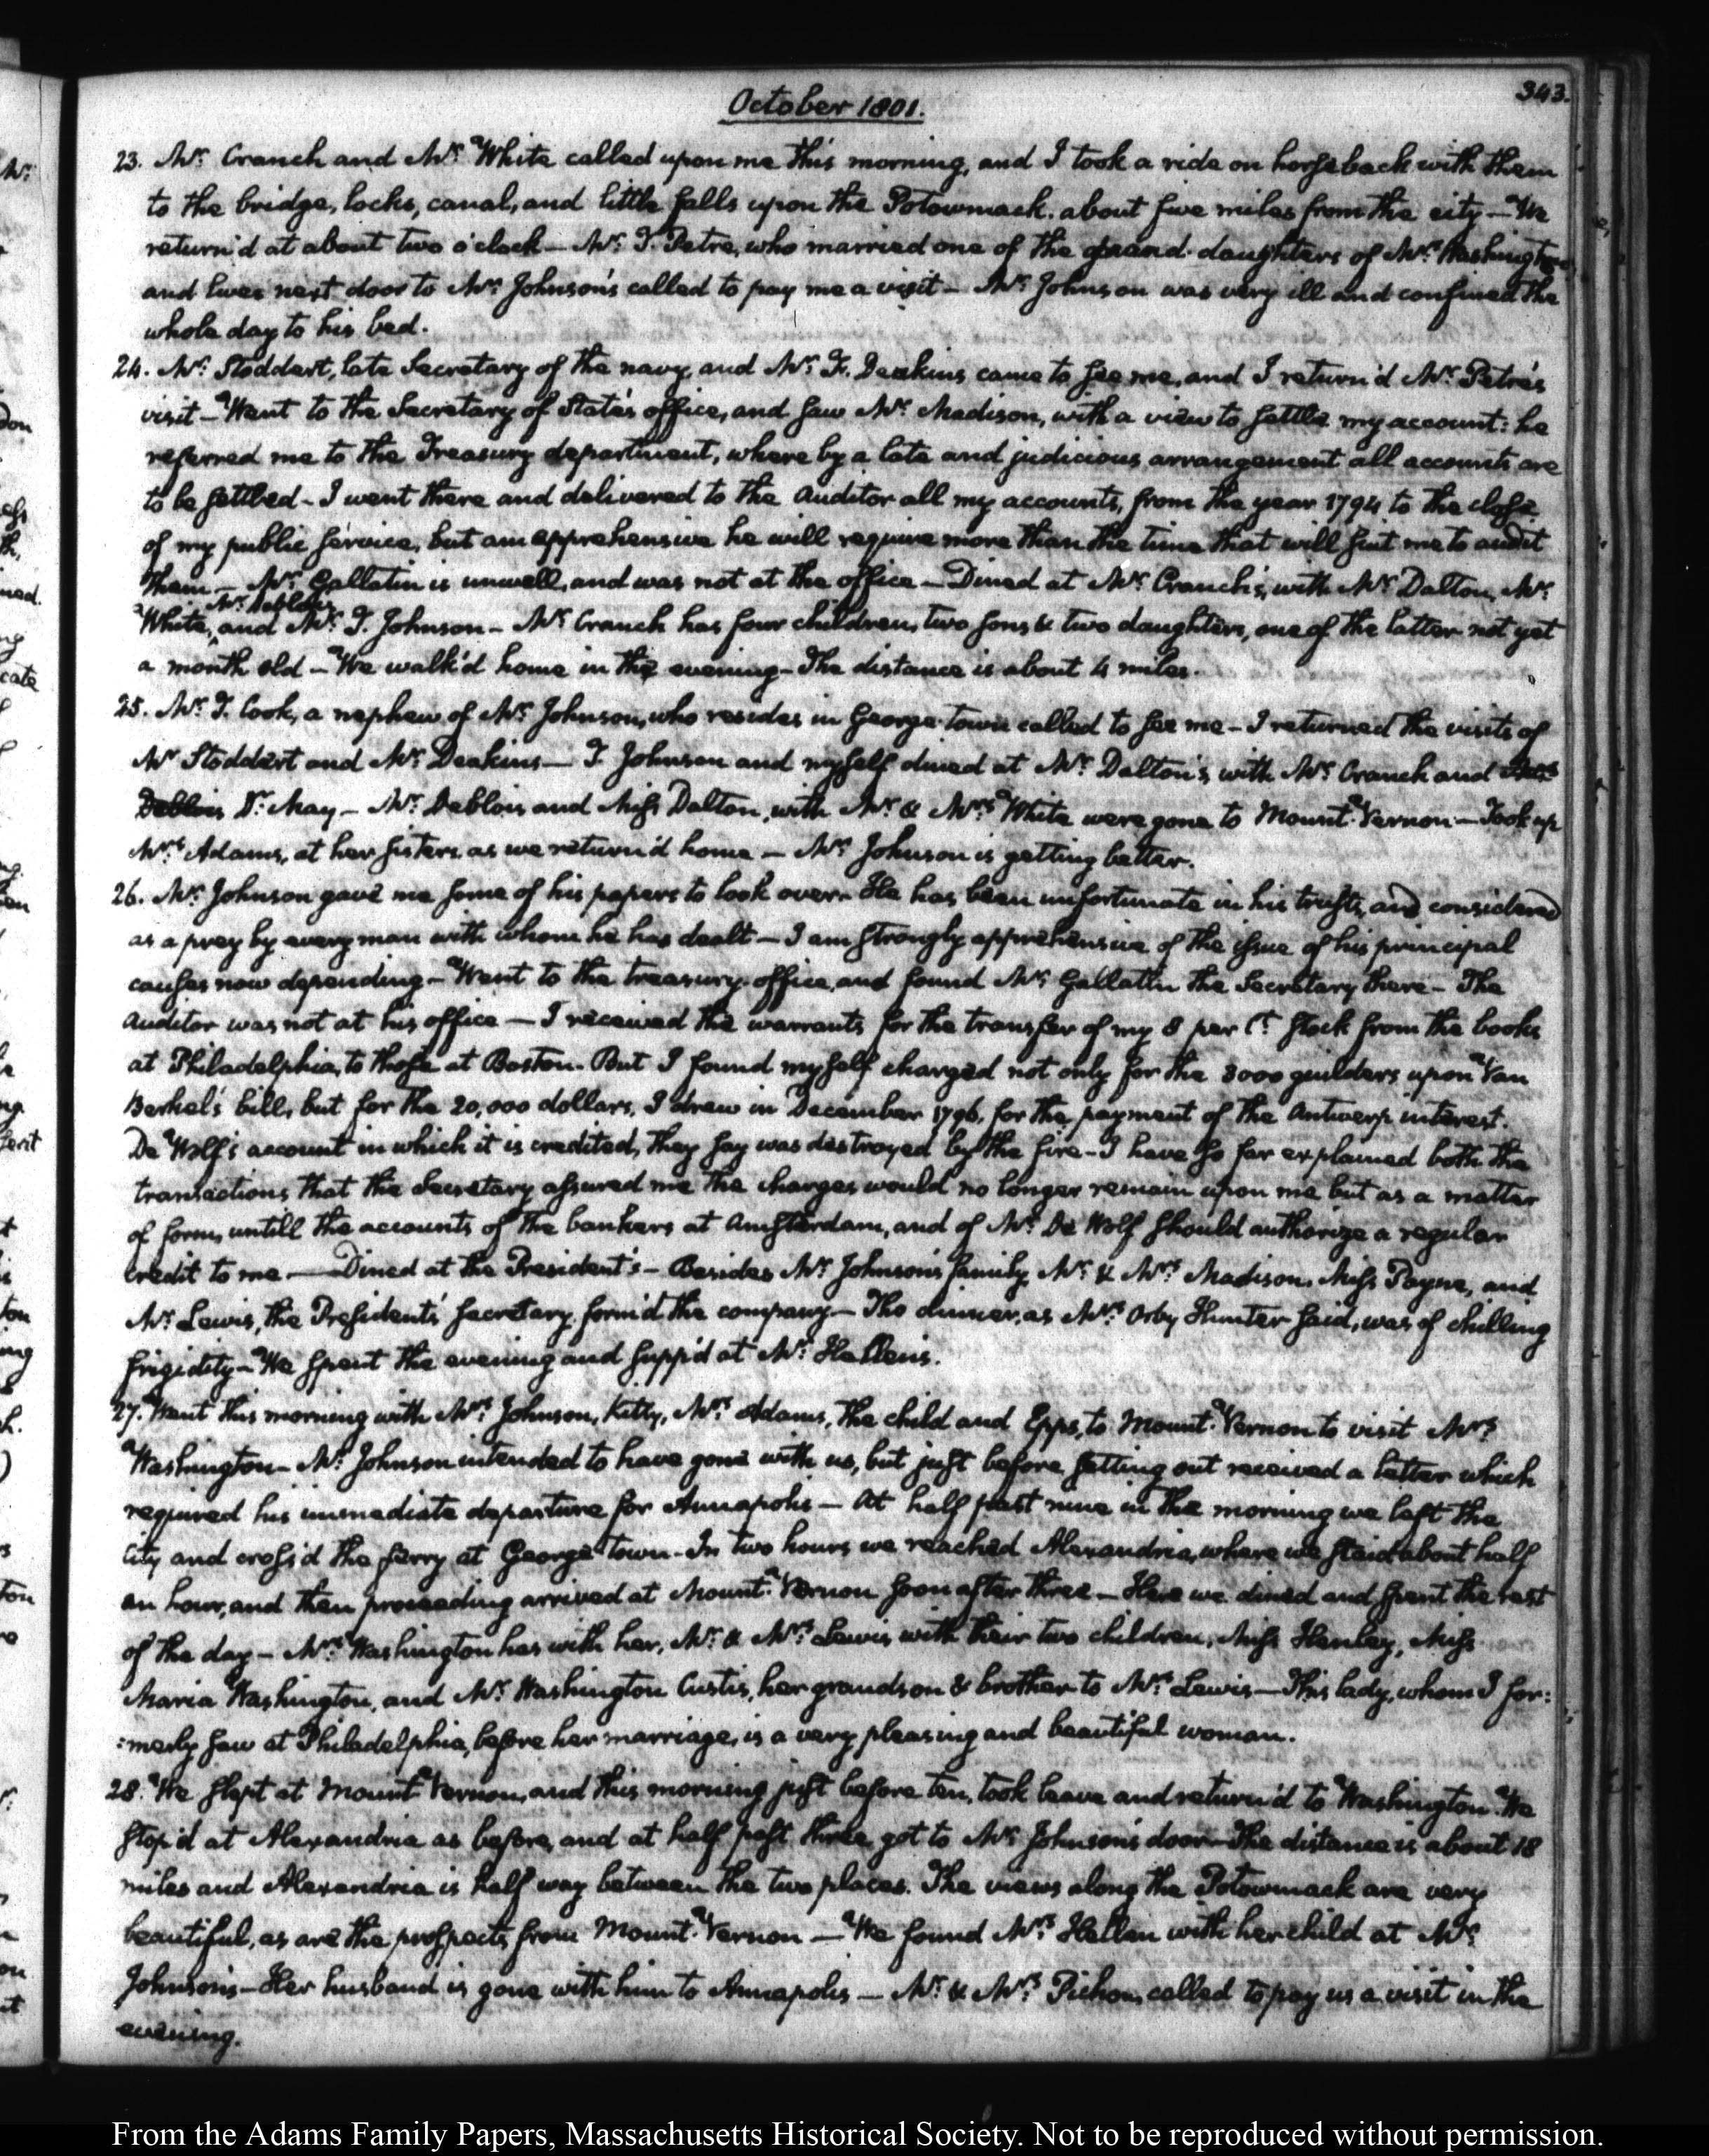 343.
October 1801.
23. Mr. Cranch and Mr. White called upon me this morning, and I took a ride on horseback with them
to the bridge, locks, canal, and little falls upon the Potowmack. about five miles from the city — We
return'd at about two o'clock — Mr. T. Petre, who married one of the grand-daughters of Mrs. Washington
and lives next door to Mr. Johnson's called to pay me a visit — Mr. Johnson was very ill and confined the
whole day to his bed.
24. Mr. Stoddert, late Secretary of the navy, and Mr. F. Deakins came to see me, and I return'd Mr. Petre's
visit — Went to the Secretary of State's office, and saw Mr. Madison, with a view to settle my account: he
referred me to the Treasury department, where by a late and judicious arrangement all accounts are
to be settled — I went there and delivered to the Auditor all my accounts, from the year 1794 to the close
of my public service, but am apprehensive he will require more than the time that will suit me to audit
them — Mr. Gallatin is unwell, and was not at the office — Dined at Mr. Cranch's, with Mr. Dalton, Mr.
Mr. Deblois
White, and Mr. T. Johnson — Mr. Cranch has four children, two sons & two daughters, one of the latter not yet
a month old — We walk'd home in the evening — The distance is about 4 miles.
25. Mr. T. Cook, a nephew of Mr. Johnson, who resides in George-town called to see me — I returned the visits of
Mr Stoddert and Mr. Deakins — T. Johnson and myself dined at Mr. Dalton's, with Mr. Cranch and Mrs.
Deblois Dr. May — Mr. Deblois and Miss Dalton, with Mr. & Mrs. White were gone to Mount-Vernon — Took up
Mrs. Adams, at her sisters as we return'd home — Mr. Johnson is getting better.
26. Mr. Johnson gave me some of his papers to look over. He has been unfortunate in his trusts, and considered
as a prey by every man with whom he has dealt — I am strongly apprehensive of the issue of his principal
causes now depending — Went to the treasury-office, and found Mr. Gallatin the Secretary there — The
Auditor was not at his office — I received the warrants for the transfer of my 8 per Ct. stock from the books
at Philadelphia, to those at Boston. But I found myself charged not only for the 3000 guilders upon Van
Berkel's bill, but for the 20,000 dollars, I drew in December 1796. for the payment of the Antwerp interest.
De Wolf's account in which it is credited, they say was destroyed by the fire — I have so far explained both the
transactions that the Secretary assured me the charges would no longer remain upon me but as a matter
of form, untill the accounts of the bankers at Amsterdam, and of Mr. De Wolf should authorize a regular
credit to me — Dined at the President's — Besides Mr. Johnson's family, Mr. & Mrs. Madison, Miss Payne, and
Mr. Lewis, the President's secretary, form'd the company — The dinner, as Mrs. Orby Hunter said, was of chilling
frigidity — We spent the evening and supp'd at Mr. Hellen's.
27. Went this morning with Mrs. Johnson, Kitty, Mrs. Adams, the child and Epps, to Mount-Vernon to visit Mrs.
Washington — Mr. Johnson intended to have gone with us, but just before setting out received a letter which
required his immediate departure for Annapolis — At half past nine in the morning we left the
City and cross'd the ferry at George town — In two hours we reached Alexandria, where we staid about half
an hour, and then proceeding arrived at Mount-Vernon soon after three — Here we dined and spent the rest
of the day — Mrs. Washington has with her, Mr. & Mrs. Lewis with their two children, Miss Henley, Miss
Maria Washington, and Mr. Washington Custis, her grandson & brother to Mrs. Lewis — This lady, whom I for:
:merly saw at Philadelphia, before her marriage, is a very pleasing and beautiful woman.
28. We slept at Mount Vernon, and this morning just before ten, took leave and return'd to Washington. We
stop'd at Alexandria as before, and at half past three got to Mr. Johnson's door — The distance is about 18
miles and Alexandria is half way between the two places. The views along the Potowmack are very
beautiful, as are the prospects from Mount-Vernon — We found Mrs. Hellen with her child at Mr.
Johnson's — Her husband is gone with him to Annapolis — Mr. & Mrs. Pichon called to pay us a visit in the
evening.
From the Adams Family Papers, Massachusetts Historical Society. Not to be reproduced without permission.